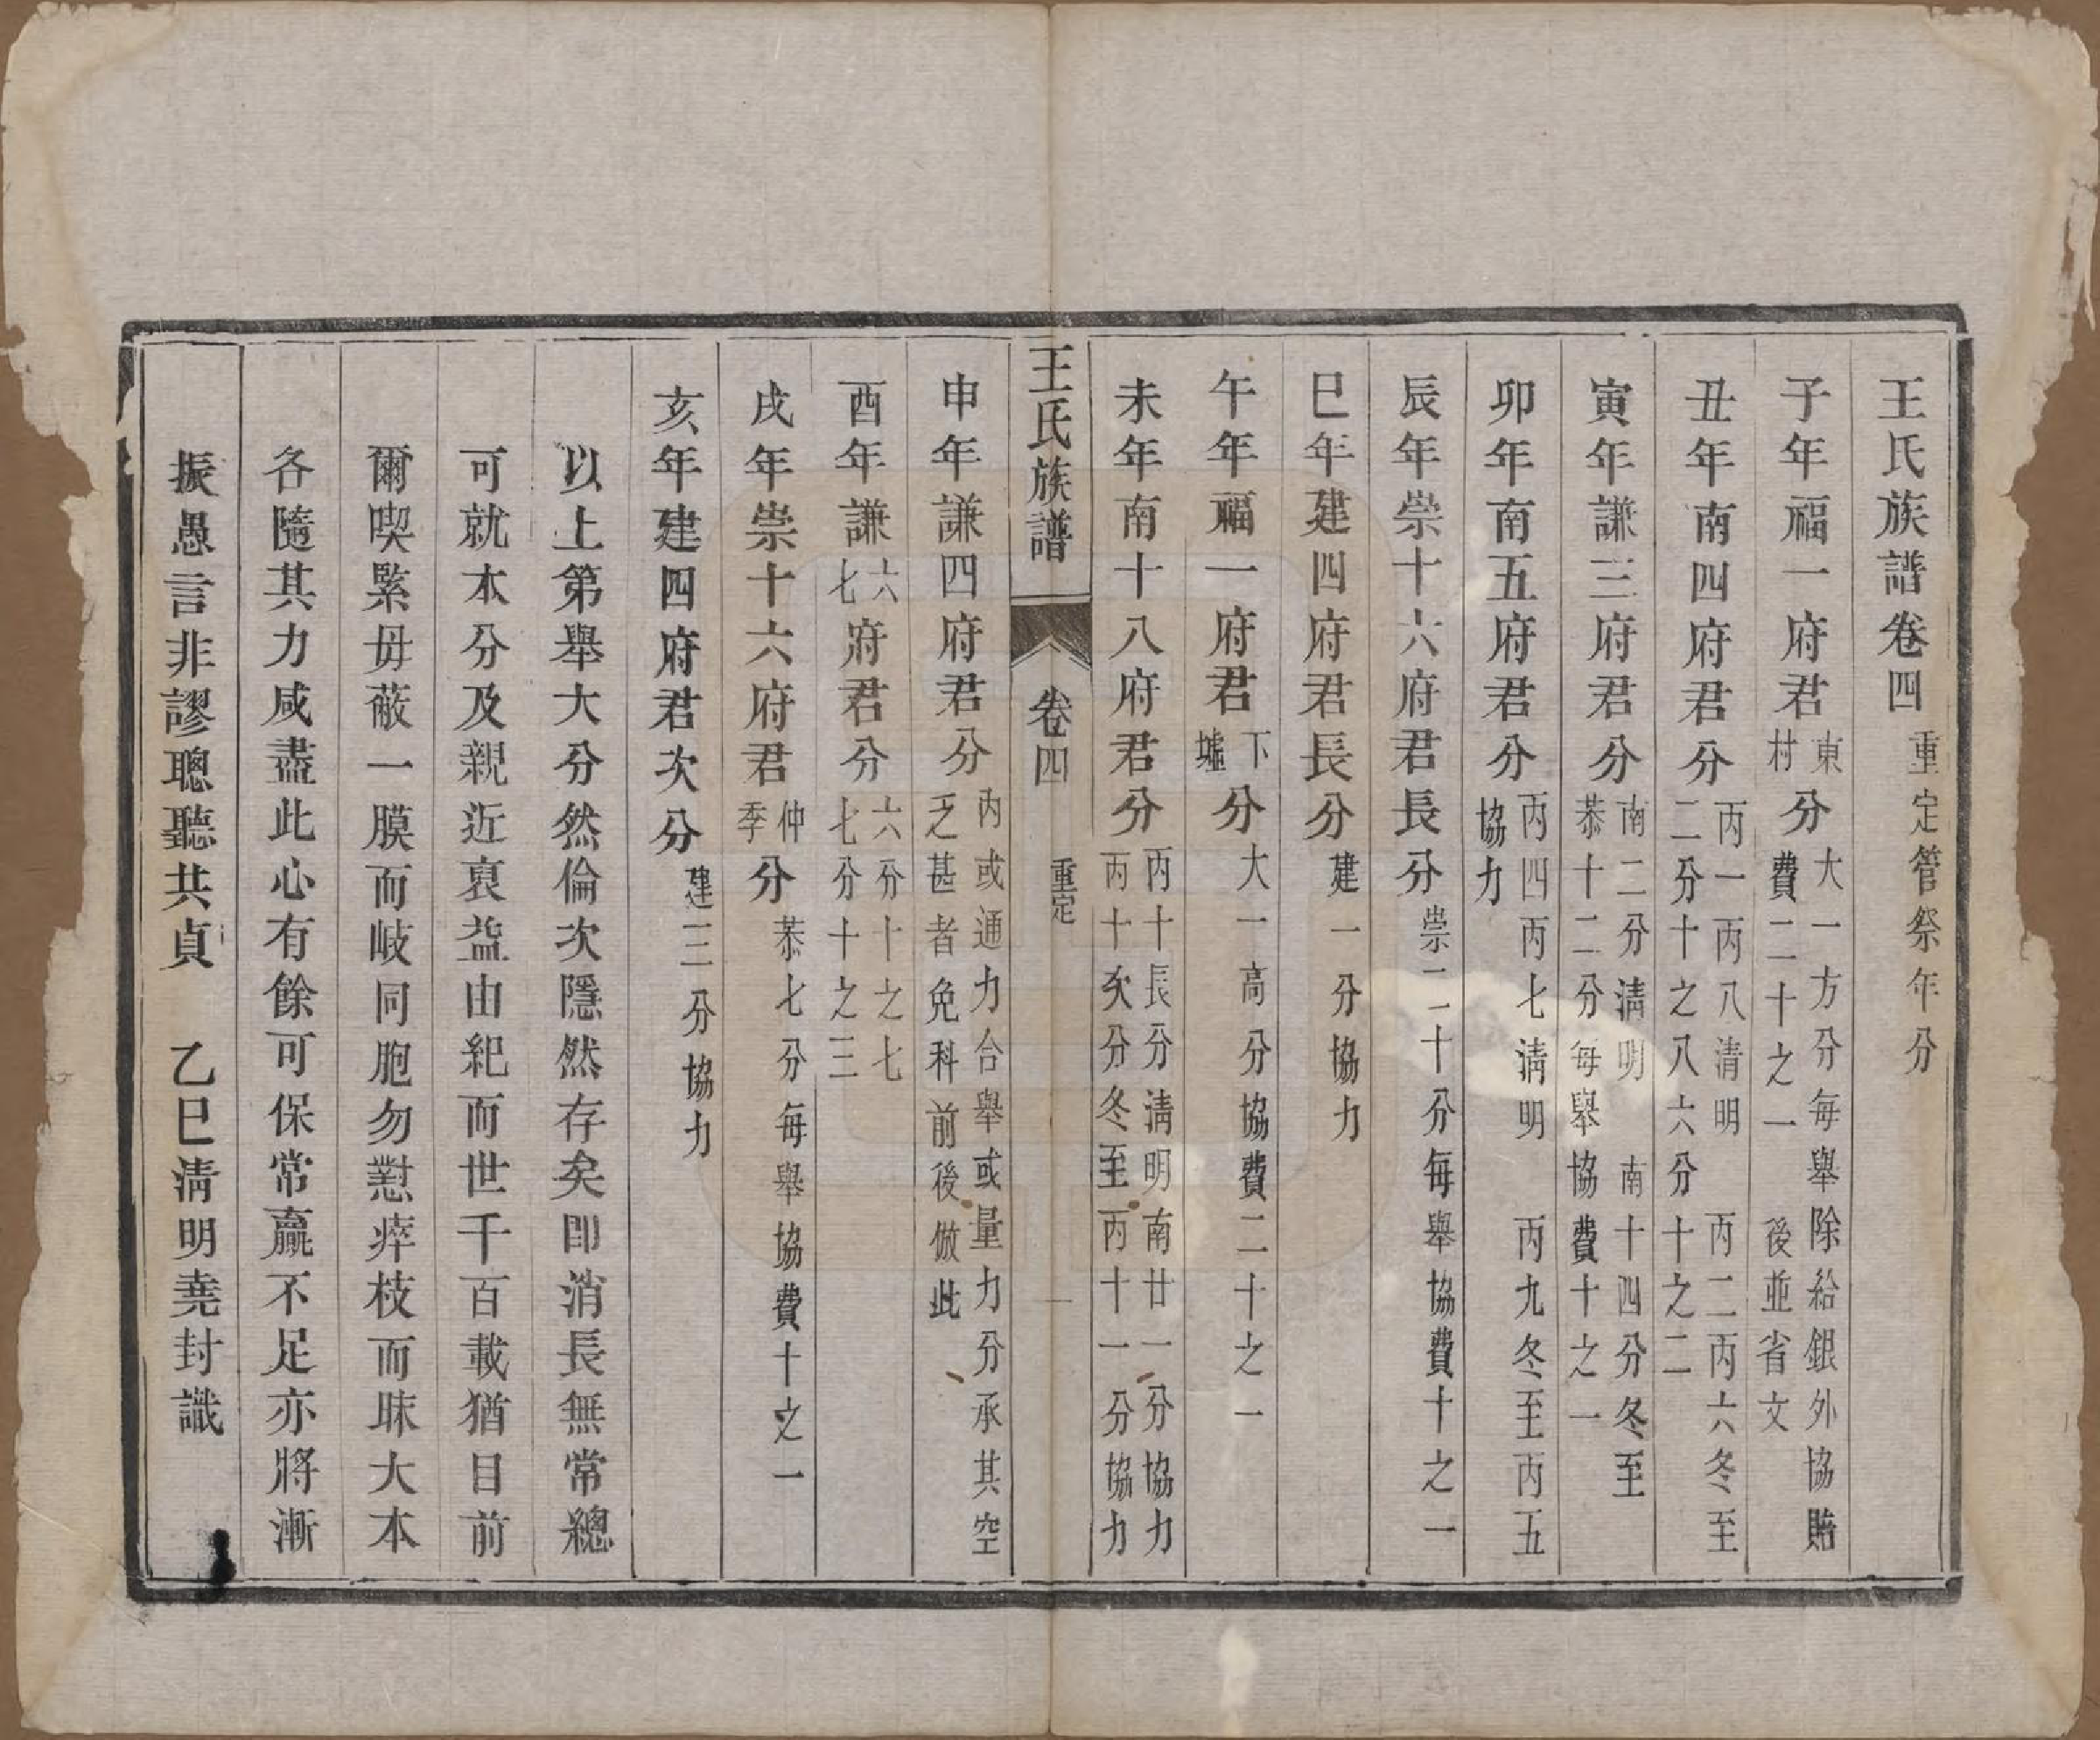 王氏族譜卷四 重定管祭年分
子年福一府君東村分大一方分每舉除給銀外協賠費二十之一 後並省文
丑年南四府君分丙一丙八清明 丙二丙六冬至二分十之八六分十之二
寅年謙三府君分南二分清明 南十四分冬至恭十二分每舉協費十之一
卯年南五府君分丙四丙七清明 丙九冬至丙五協力
辰年崇十六府君長分崇二一十分每舉協費十之一
巳年建四府君長分建一分協力
午年福一府君下墟分大一高分協費二十之一
未年南十八府君分丙十長分清明南廿一分協力丙十次分冬至丙十一分協力
王氏族譜 卷四 重定 一
申年謙四府君分內或通力合舉或量力分承其空乏甚者免科前後倣此
酉年謙六七府君分六分十之七七分十之三
戌年崇十六府君仲季分恭七分每舉協費十之一
亥年建四府君次分建三分協力
以上第舉大分然倫次隱然存矣即消長無常總
可就本分及親近裒益由紀而世千百載猶目前
爾喫緊毋蔽一膜而岐同胞勿懟瘁枝而昧大本
各隨其力咸盡此心有餘可保常贏不足亦將漸
振愚言非謬聰聽共貞 乙巳清明堯封識